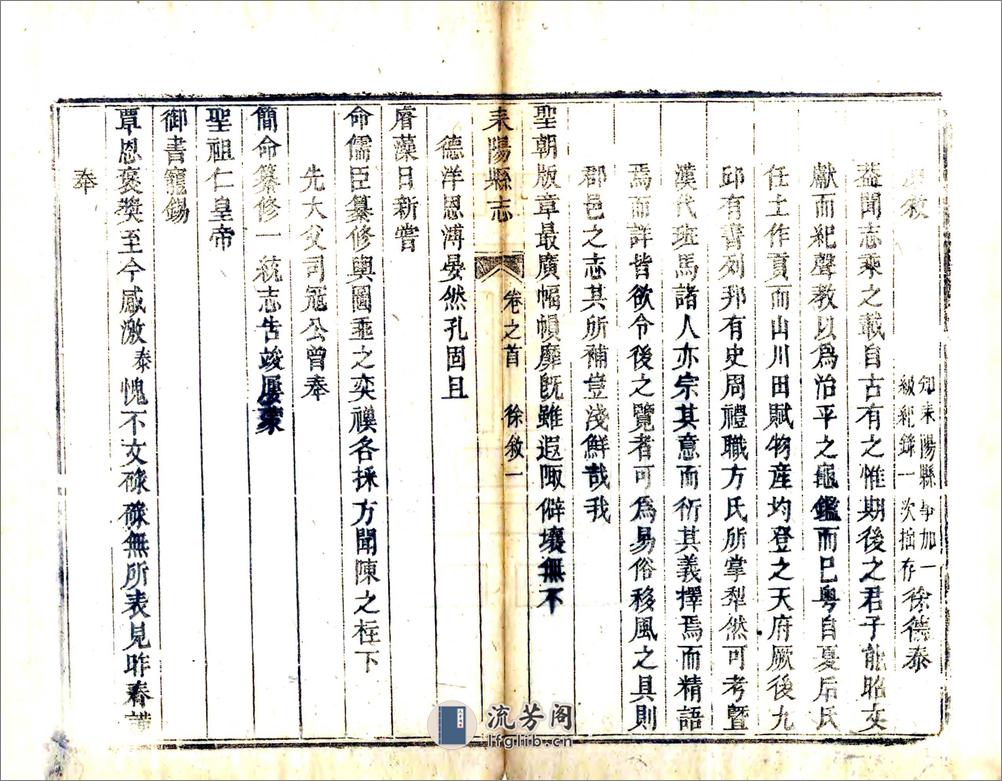 敘
知耒陽縣事加一級紀錄一次 徐德泰
葢聞志乘之載自古有之惟期後之君子能昭文
獻而紀聲教以為治平之龜鑑而已粵自夏后氏
任土作貢而山川田賦物產均登之天府厥後九
邱有書列邦有史周禮職方氏所掌犁然可考暨
漢代班馬諸人亦宗其意而衍其義擇焉而精語
焉而詳皆欲令後之覽者可為易俗移風之具則
郡邑之志其所補豈淺鮮哉我
聖朝版章最廣幅幀靡旣雖遐陬僻壤無不
耒陽縣志 卷之首 徐敘 一
德洋恩溥晏然孔固且
睿藻日新嘗
命儒臣纂修輿圖垂之奕禩各採方聞陳之在下
先大父司寇公曾奉
簡命纂修一統志告竣屢蒙
聖祖仁皇帝
御書寵錫
覃恩褒獎至今感激泰愧不文碌碌無所表見昨春
奉
流芳阁
lfglib.cn